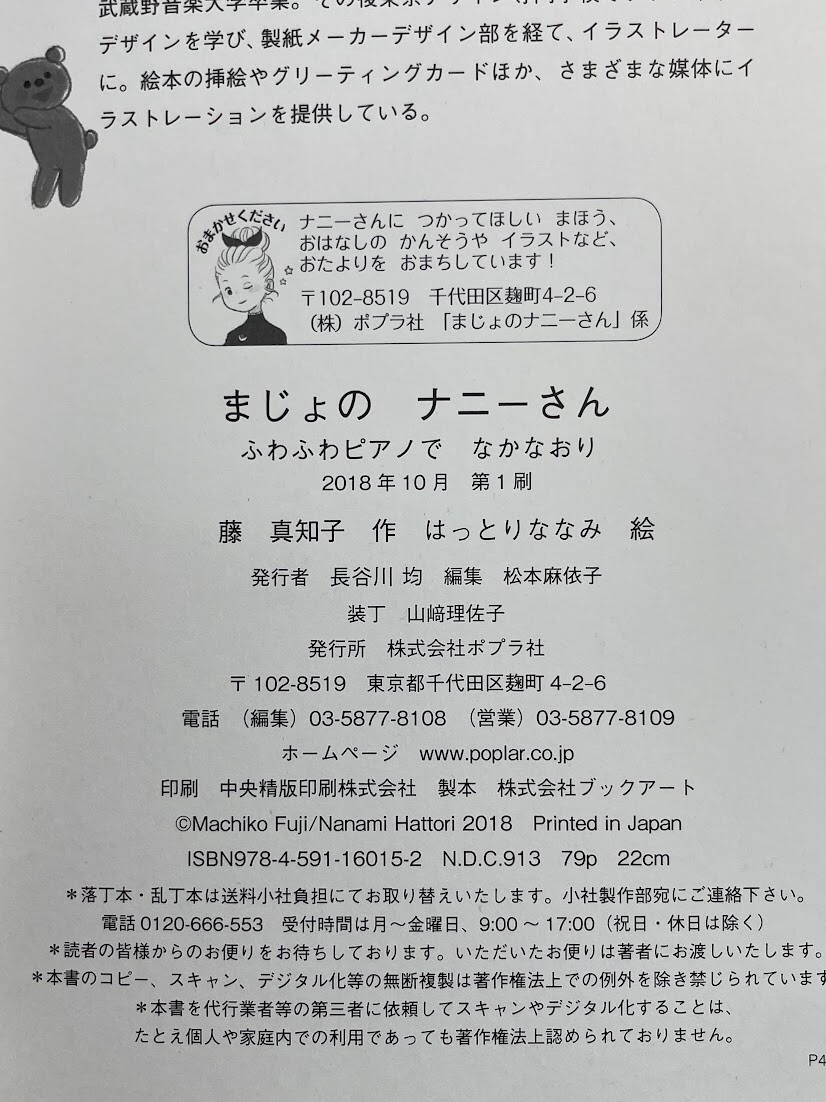 デザインを学び、製紙メーカーデザイン部を経て、イラストレーター
に。絵本の挿絵やグリーティングカードほか、さまざまな媒体にイ
ラストレーションを提供している。
おまかせください
ナニーさんに つかってほしい まほう、
おはなしの かんそうや イラストなど、
おたよりを おまちしています!
〒102-8519 千代田区麹町4-2-6
(株)ポプラ社 「まじょのナニーさん」係
まじょの ナニーさん
ふわふわピアノで なかなおり
2018年10月 第1刷
藤 真知子 作 はっとりななみ 絵
発行者 長谷川 均 編集 松本麻依子
装丁 山﨑理佐子
発行所 株式会社ポプラ社
〒102-8519 東京都千代田区麹町4-2-6
電話 (編集)03-5877-8108 (営業)03-5877-8109
ホームページ www.poplar.co.jp
印刷 中央精版印刷株式会社 製本 株式会社ブックアート
©Machiko Fuji/Nanami Hattori 2018 Printed in Japan
ISBN978-4-591-16015-2 N.D.C.913 79p 22cm
*落丁本・乱丁本は送料小社負担にてお取り替えいたします。小社製作部宛にご連絡下さい。
電話0120-666-553 受付時間は月~金曜日、9:00~17:00(祝日・休日は除く)
*読者の皆様からのお便りをお待ちしております。いただいたお便りは著者にお渡しいたします。
*本書のコピー、スキャン、デジタル化等の無断複製は著作権法上での例外を除き禁じられています
*本書を代行業者等の第三者に依頼してスキャンやデジタル化することは、
たとえ個人や家庭内での利用であっても著作権法上認められておりません。
P4